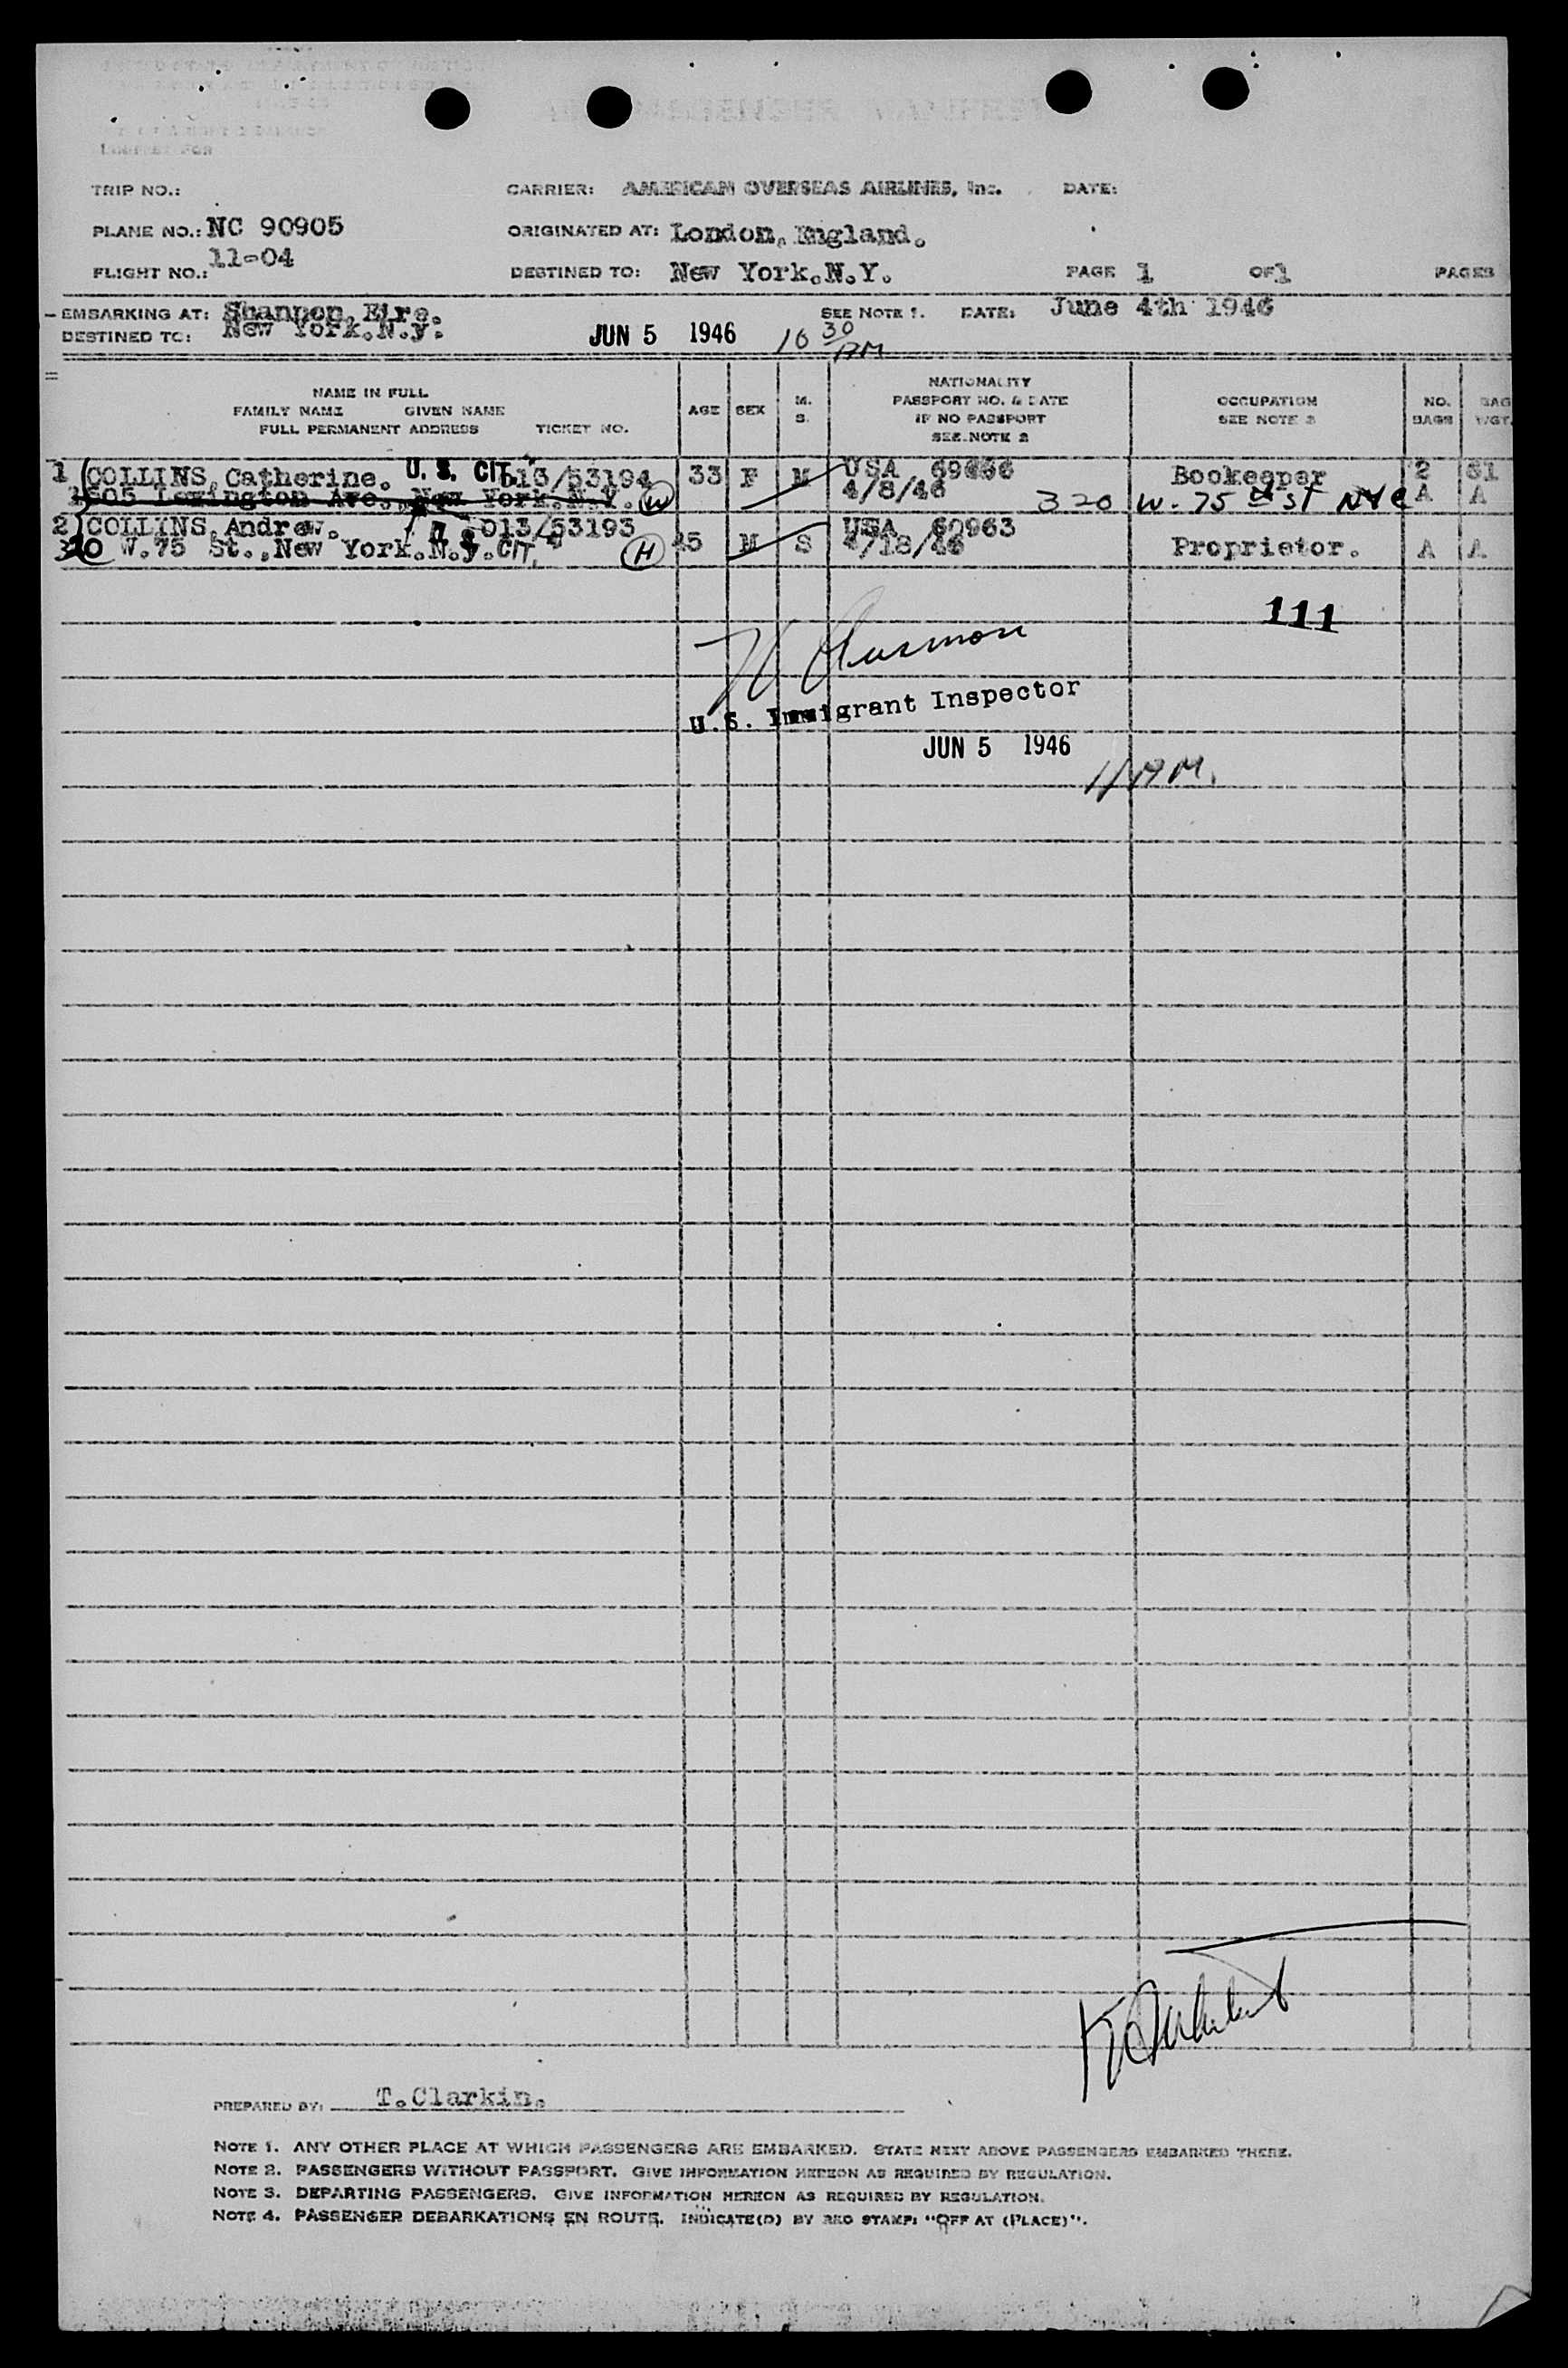 TRIP NO.: CARRIER: AMERICAN OVERSEAS AIRLINES, Inc. DATE:
PLANE NO.: NC 90905 ORIGINATED AT: London, England.
FLIGHT NO.: 11-04 DESTINED TO: New York.N.Y. PAGE 1 OF 1 PAGES
EMBARKING AT: Shannon, Eire. SEE NOTE 1. DATE: June 4th 1946
DESTINED TO: New York.N.y. JUN 5 1946 10 30 AM
NAME IN FULL
FAMILY NAME GIVEN NAME
FULL PERMANENT ADDRESS TICKET NO.
AGE SEX M. S.
NATIONALITY
PASSPORT NO. & DATE
IF NO PASSPORT
SEE NOTE 2
OCCUPATION
SEE NOTE 3
NO. BAGS
BAG WGT.
1 COLLINS, Catherine. U. S. CIT. 013/53194 33 F M USA Bookeeper 2
Lexington Ave., New York.N.Y. (W) 4/8/46 320 W. 75 St NYC A A
2 COLLINS, Andrew. 013/53193 45 M S USA 60963 Proprietor. A A
320 W.75 St.,New York.N.y. CIT. (H)
111
U.S. Immigrant Inspector
JUN 5 1946
PREPARED BY: T.Clarkin.
NOTE 1. ANY OTHER PLACE AT WHICH PASSENGERS ARE EMBARKED. STATE NEXT ABOVE PASSENGERS EMBARKED THERE.
NOTE 2. PASSENGERS WITHOUT PASSPORT. GIVE INFORMATION HEREON AS REQUIRED BY REGULATION.
NOTE 3. DEPARTING PASSENGERS. GIVE INFORMATION HEREON AS REQUIRED BY REGULATION.
NOTE 4. PASSENGER DEBARKATIONS EN ROUTE. INDICATE(D) BY RED STAMP: "OFF AT (PLACE)".